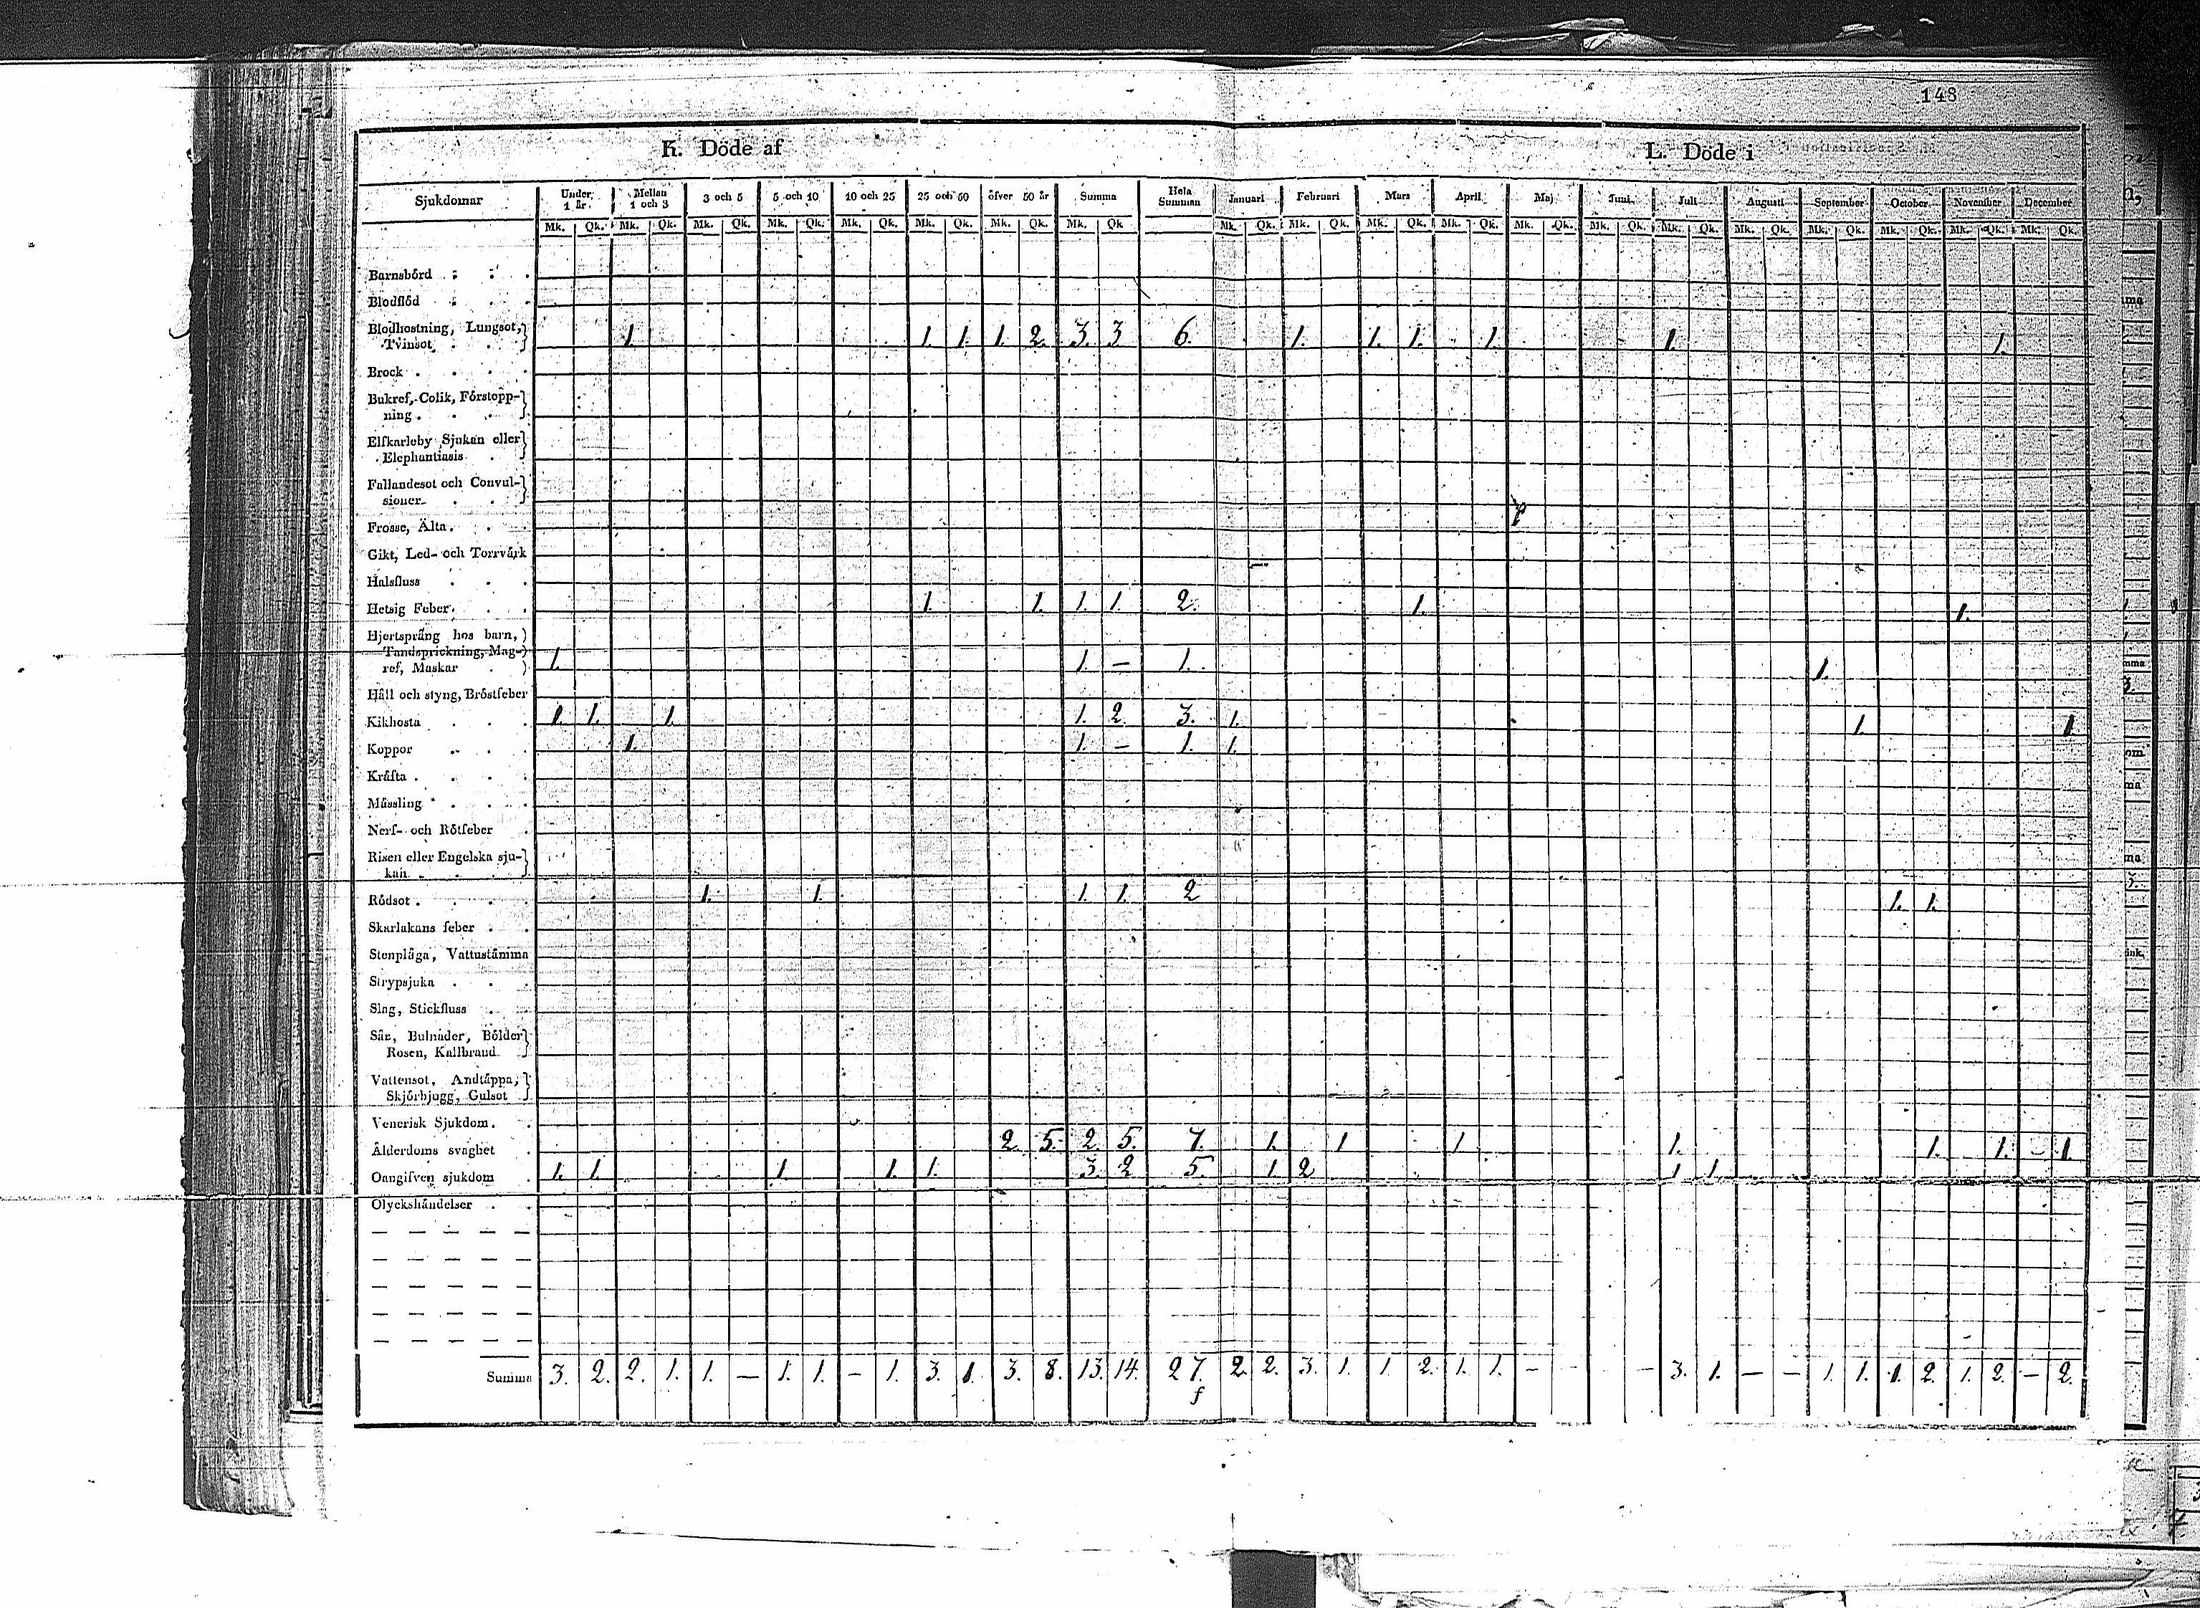 148
K. Döde af
L. Döde i
Sjukdomar Under 1 år. Mellan 1 och 3 3 och 5 5 och 10 10 och 25 25 och 50 öfver 50 år Summa Hela Summan Januari Februari Mars April Maj Juni Juli Augusti September October November December
Mk. Qk. Mk. Qk. Mk. Qk. Mk. Qk. Mk. Qk. Mk. Qk. Mk. Qk. Mk. Qk Mk. Qk. Mk. Qk. Mk. Qk. Mk. Qk. Mk. Qk. Mk. Qk. Mk. Qk. Mk. Qk. Mk. Qk. Mk. Qk. Mk. Qk. Mk. Qk.
Barnsbörd
Blodflöd
Blodhostning, Lungsot,
Tvinsot 1. 1. 1. 1. 2. 3. 3 6. 1. 1. 1. 1. 1. 1.
Brock
Bukref, Colik, Förstopp-
ning
Elfkarleby Sjukan eller
Elephantiasis
Fallandesot och Convul-
sioner
Frosse, Älta
Gikt, Led- och Torrvärk
Halsfluss
Hetsig Feber 1. 1. 1. 1. 2. 1. 1.
Hjertsprång hos barn,
Tandsprickning, Mag-
ref, Maskar 1. 1. — 1. 1.
Håll och styng, Bröstfeber
Kikhosta 1. 1. 1. 1. 2. 3. 1. 1. 1.
Koppor 1. 1. — 1. 1.
Kräfta
Mässling
Nerf- och Rötfeber
Risen eller Engelska sju-
kan
Rödsot 1. 1. 1. 1. 2 1. 1.
Skarlakans feber
Stenplåga, Vattustämma
Strypsjuka
Slag, Stickfluss
Sår, Bulnader, Bölder
Rosen, Kallbrand
Vattensot, Andtäppa,
Skjörbjugg, Gulsot
Venerisk Sjukdom.
Ålderdoms svaghet 2. 5. 2. 5. 7. 1. 1 1. 1. 1. 1. 1.
Oangifven sjukdom 1. 1. 1. 1. 1. 3. 2 5. 1. 2 1. 1.
Olyckshändelser
Summa 3. 2. 2. 1. 1. — 1. 1. — 1. 3. 1. 3. 8. 13. 14. 27. 2. 2. 3. 1. 1. 2. 1. 1. — - - 3. 1. — — 1. 1. 1. 2. 1. 2. — 2.